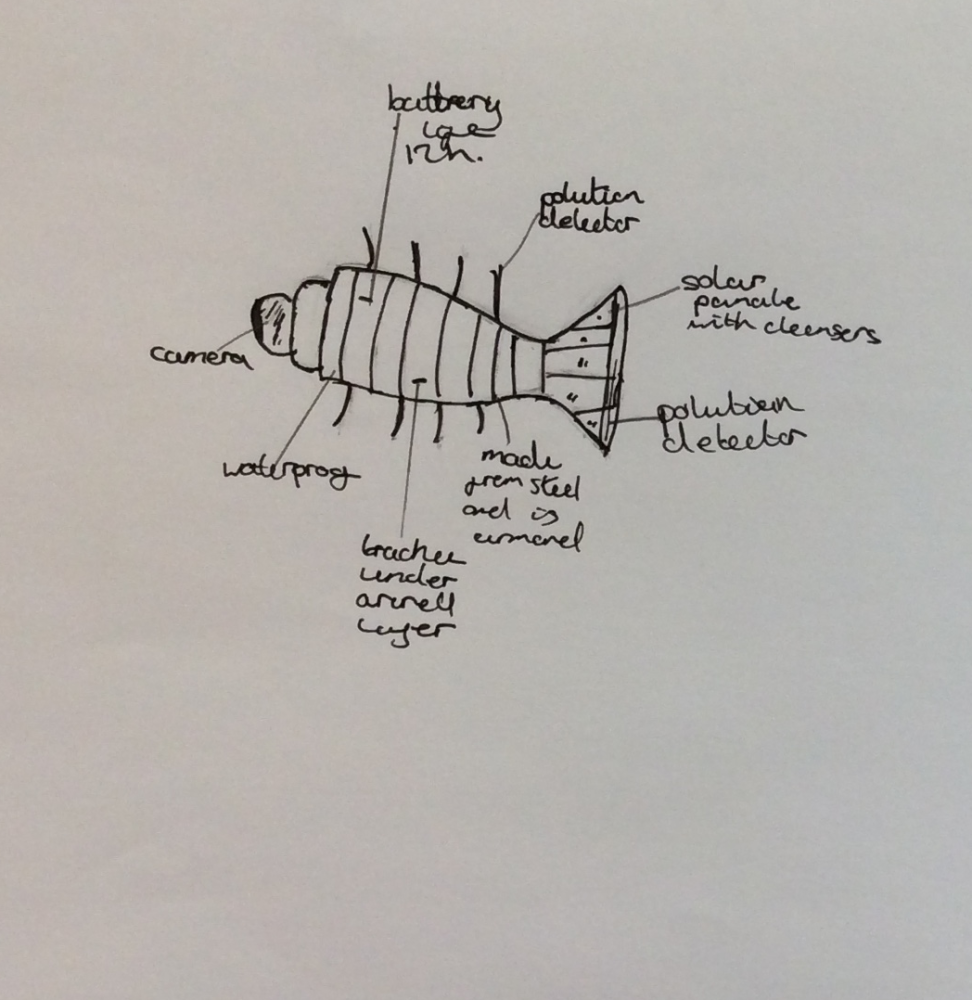 battrery
12h.
polution
detector
solar
panale
with cleansers
camera
polution
detector
waterproof
made
from steel
and is
tracker
under
layer